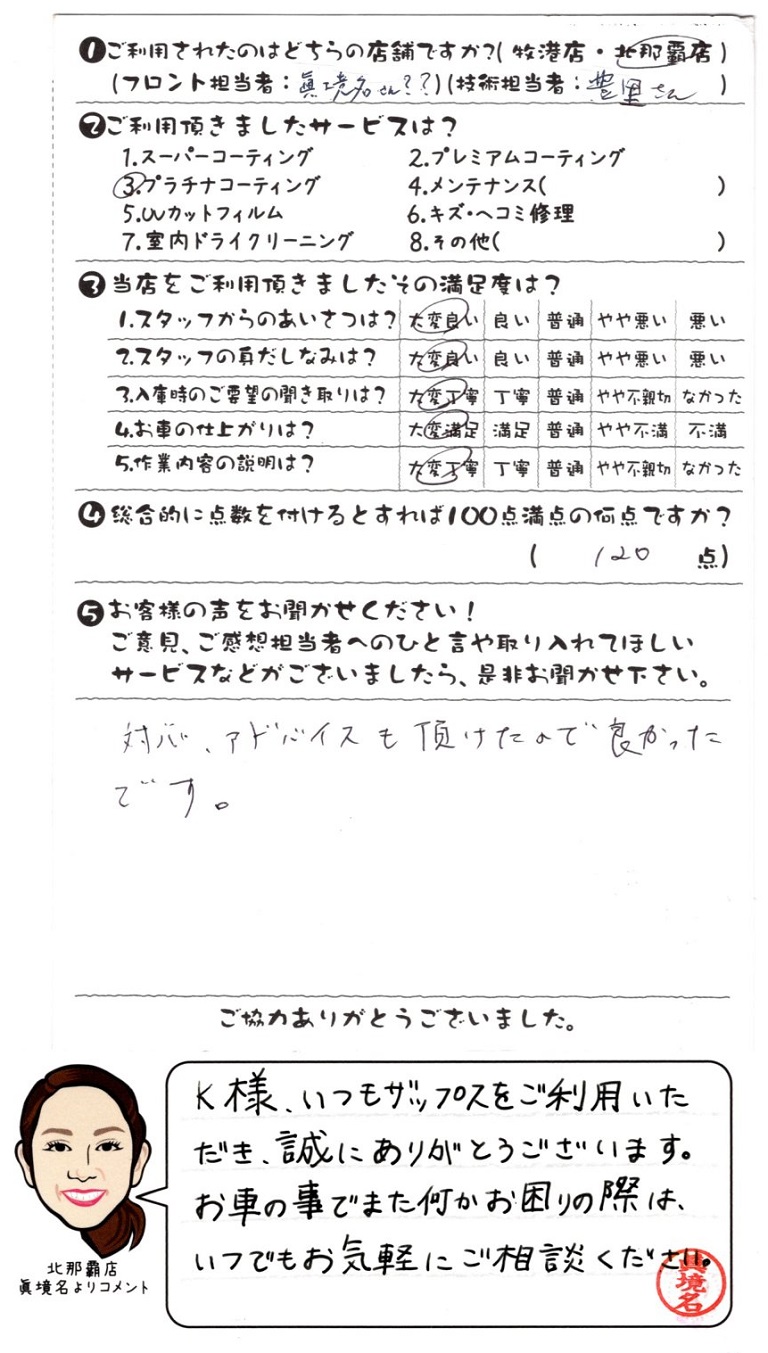 ❶ご利用されたのはどちらの店舗ですか?(牧港店・北那覇店)
(フロント担当者：眞境名さん??)(技術担当者：豊里さん)
❷ご利用頂きましたサービスは?
1.スーパーコーティング 2.プレミアムコーティング
3.プラチナコーティング 4.メンテナンス( )
5.UVカットフィルム 6.キズ・ヘコミ修理
7.室内ドライクリーニング 8.その他( )
❸当店をご利用頂きましたその満足度は?
1.スタッフからのあいさつは? 大変良い 良い 普通 やや悪い 悪い
2.スタッフの身だしなみは? 大変良い 良い 普通 やや悪い 悪い
3.入庫時のご要望の聞き取りは? 大変丁寧 丁寧 普通 やや不親切 なかった
4.お車の仕上がりは? 大変満足 満足 普通 やや不満 不満
5.作業内容の説明は? 大変丁寧 丁寧 普通 やや不親切 なかった
❹総合的に点数を付けるとすれば100点満点の何点ですか?
( 120 点)
❺お客様の声をお聞かせください!
ご意見、ご感想担当者へのひと言や取り入れてほしい
サービスなどがございましたら、是非お聞かせ下さい。
対応、アドバイスも頂けたので良かった
です。
ご協力ありがとうございました。
K様、いつもザップスをご利用いた
だき、誠にありがとうございます。
お車の事でまた何かお困りの際は、
いつでもお気軽にご相談ください。
眞境名
北那覇店
眞境名よりコメント